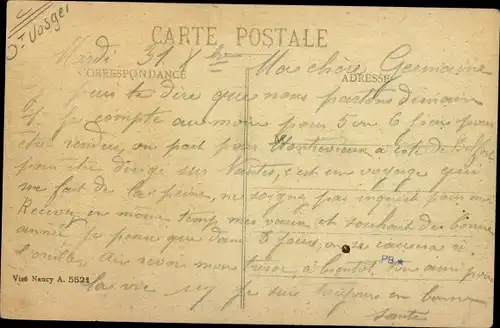 Dt Vosges
CARTE POSTALE
Mardi 31 Xbre Ma chère Germaine
CORRESPONDANCE ADRESSE
puis te dire que nous partons demain
1. Je compte au moin pour 5 ou 6 jours pour
être rendu, on part pour à coté de Belfort
pour être dirigé sur Nantes, c'est un voyage qui
me fait de la peine, ne soigne pas inquiet pour moi
Recevez en même temp mes vœux et souhait de bonne
année. Je pense que dans 8 jours, on se causera à
l'oreille. Au revoir mon tresor, à bientot, ton ami pour
PB
Visé Nancy A. 5521
la vie Je suis toujours en bonne
sante